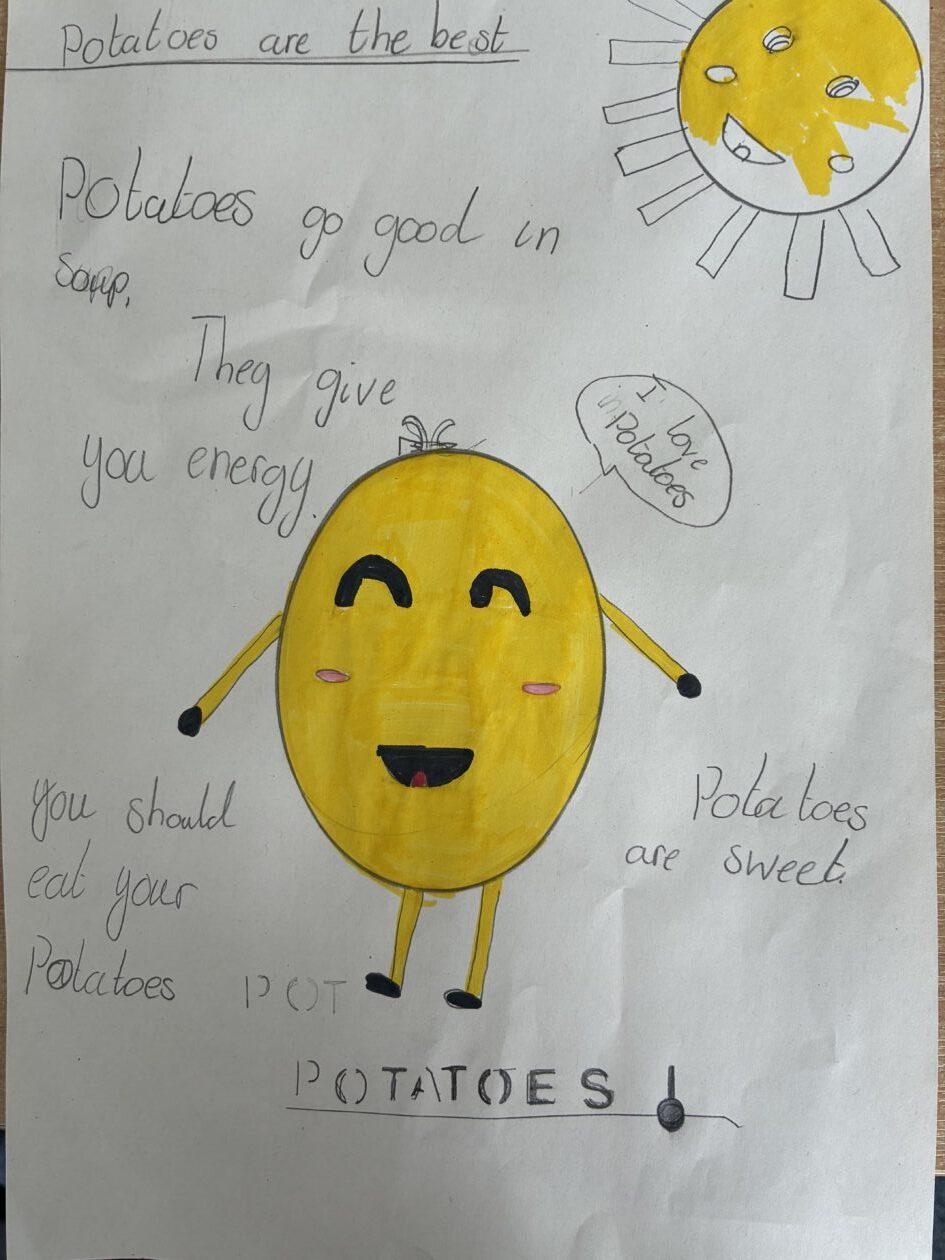 Potatoes are the best
Potatoes go good in
soup.
They give
you energy.
I love
Potatoes
You should
eat your
Potatoes
Potatoes
are sweet.
POT
POTATOES!